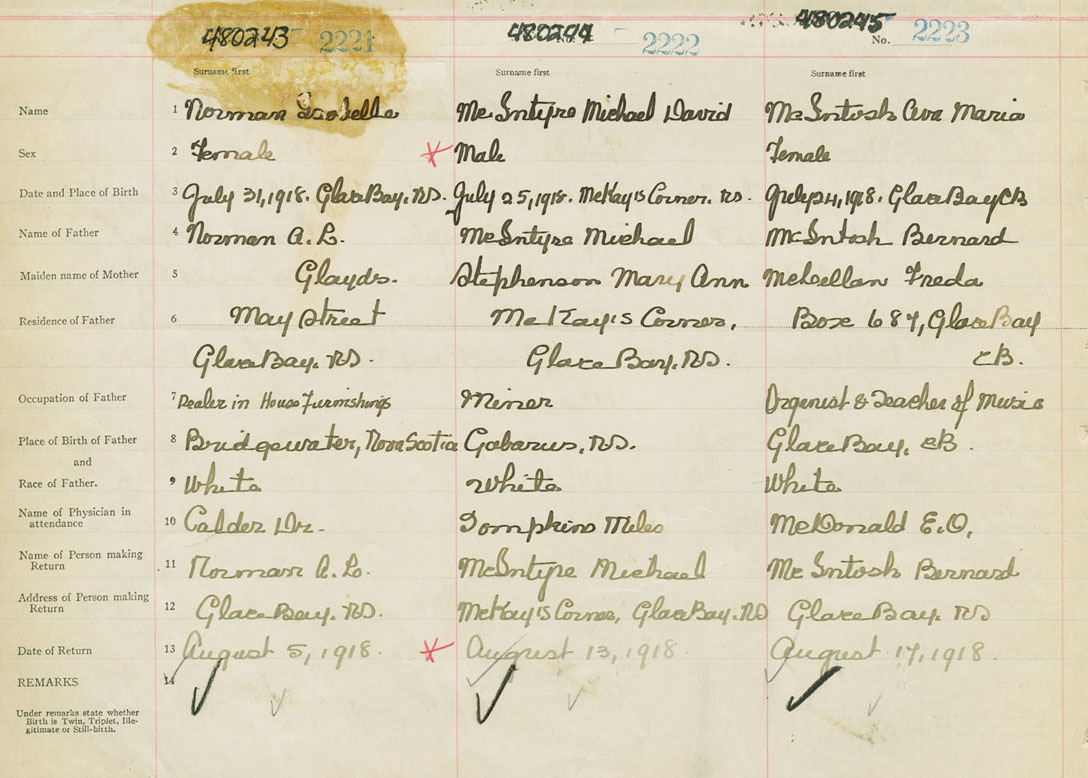 480243 2221 480244 No. 2222 480245 No. 2223
Surname first Surname first Surname first
Name 1 Norman Isabelle McIntyre Michael David McIntosh Ava Maria
Sex 2 Female Male Female
Date and Place of Birth 3 July 31, 1918. Glace Bay. NS. July 25, 1918. McKay's Corner. NS. July 24, 1918. Glace Bay CB
Name of Father 4 Norman A. L. McIntyre Michael McIntosh Bernard
Maiden name of Mother 5 Glayds. Stephenson Mary Ann McLellan Freda
Residence of Father 6 May Street McKay's Corner, Box 687, Glace Bay
Glace Bay. NS. Glace Bay. NS. CB.
Occupation of Father 7 Dealer in House Furnishings Miner Organist & Teacher of Music
Place of Birth of Father 8 Bridgewater, Nova Scotia Gabarus, NS. Glace Bay, CB.
and
Race of Father. 9 White White White
Name of Physician in
attendance 10 Calder Dr. Tompkins Miles McDonald E.O.
Name of Person making
Return 11 Norman A. L. McIntyre Michael McIntosh Bernard
Address of Person making
Return 12 Glace Bay. NS. McKay's Corner, Glace Bay. NS Glace Bay. NS
Date of Return 13 August 5, 1918. August 13, 1918. August 17, 1918.
REMARKS 14
Under remarks state whether
Birth is Twin, Triplet, Ille-
gitimate or Still-birth.